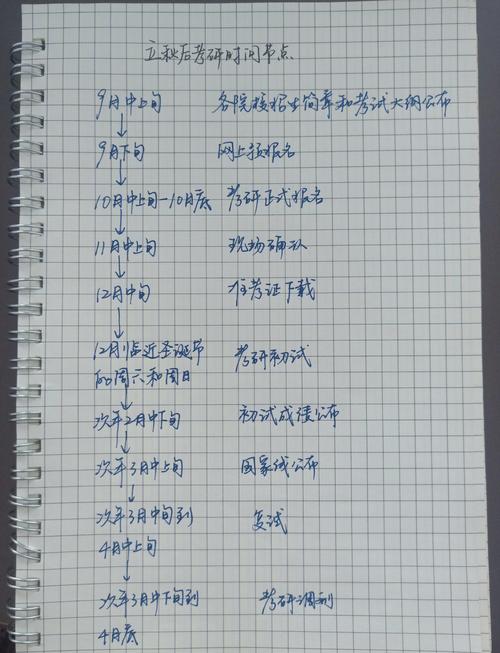 立秋后考研时间节点
9月中上旬 各院校招生简章和考试大纲公布
9月下旬 网上预报名
10月中上旬-10月底 考研正式报名
11月中上旬 现场确认
12月中旬 准考证下载
12月临近圣诞节 考研初试
的周六和周日
次年2月中下旬 初试成绩公布
次年3月中上旬 国家线公布
次年3月中旬到 复试
4月中上旬
次年3月中下旬到 考研调剂
4月底